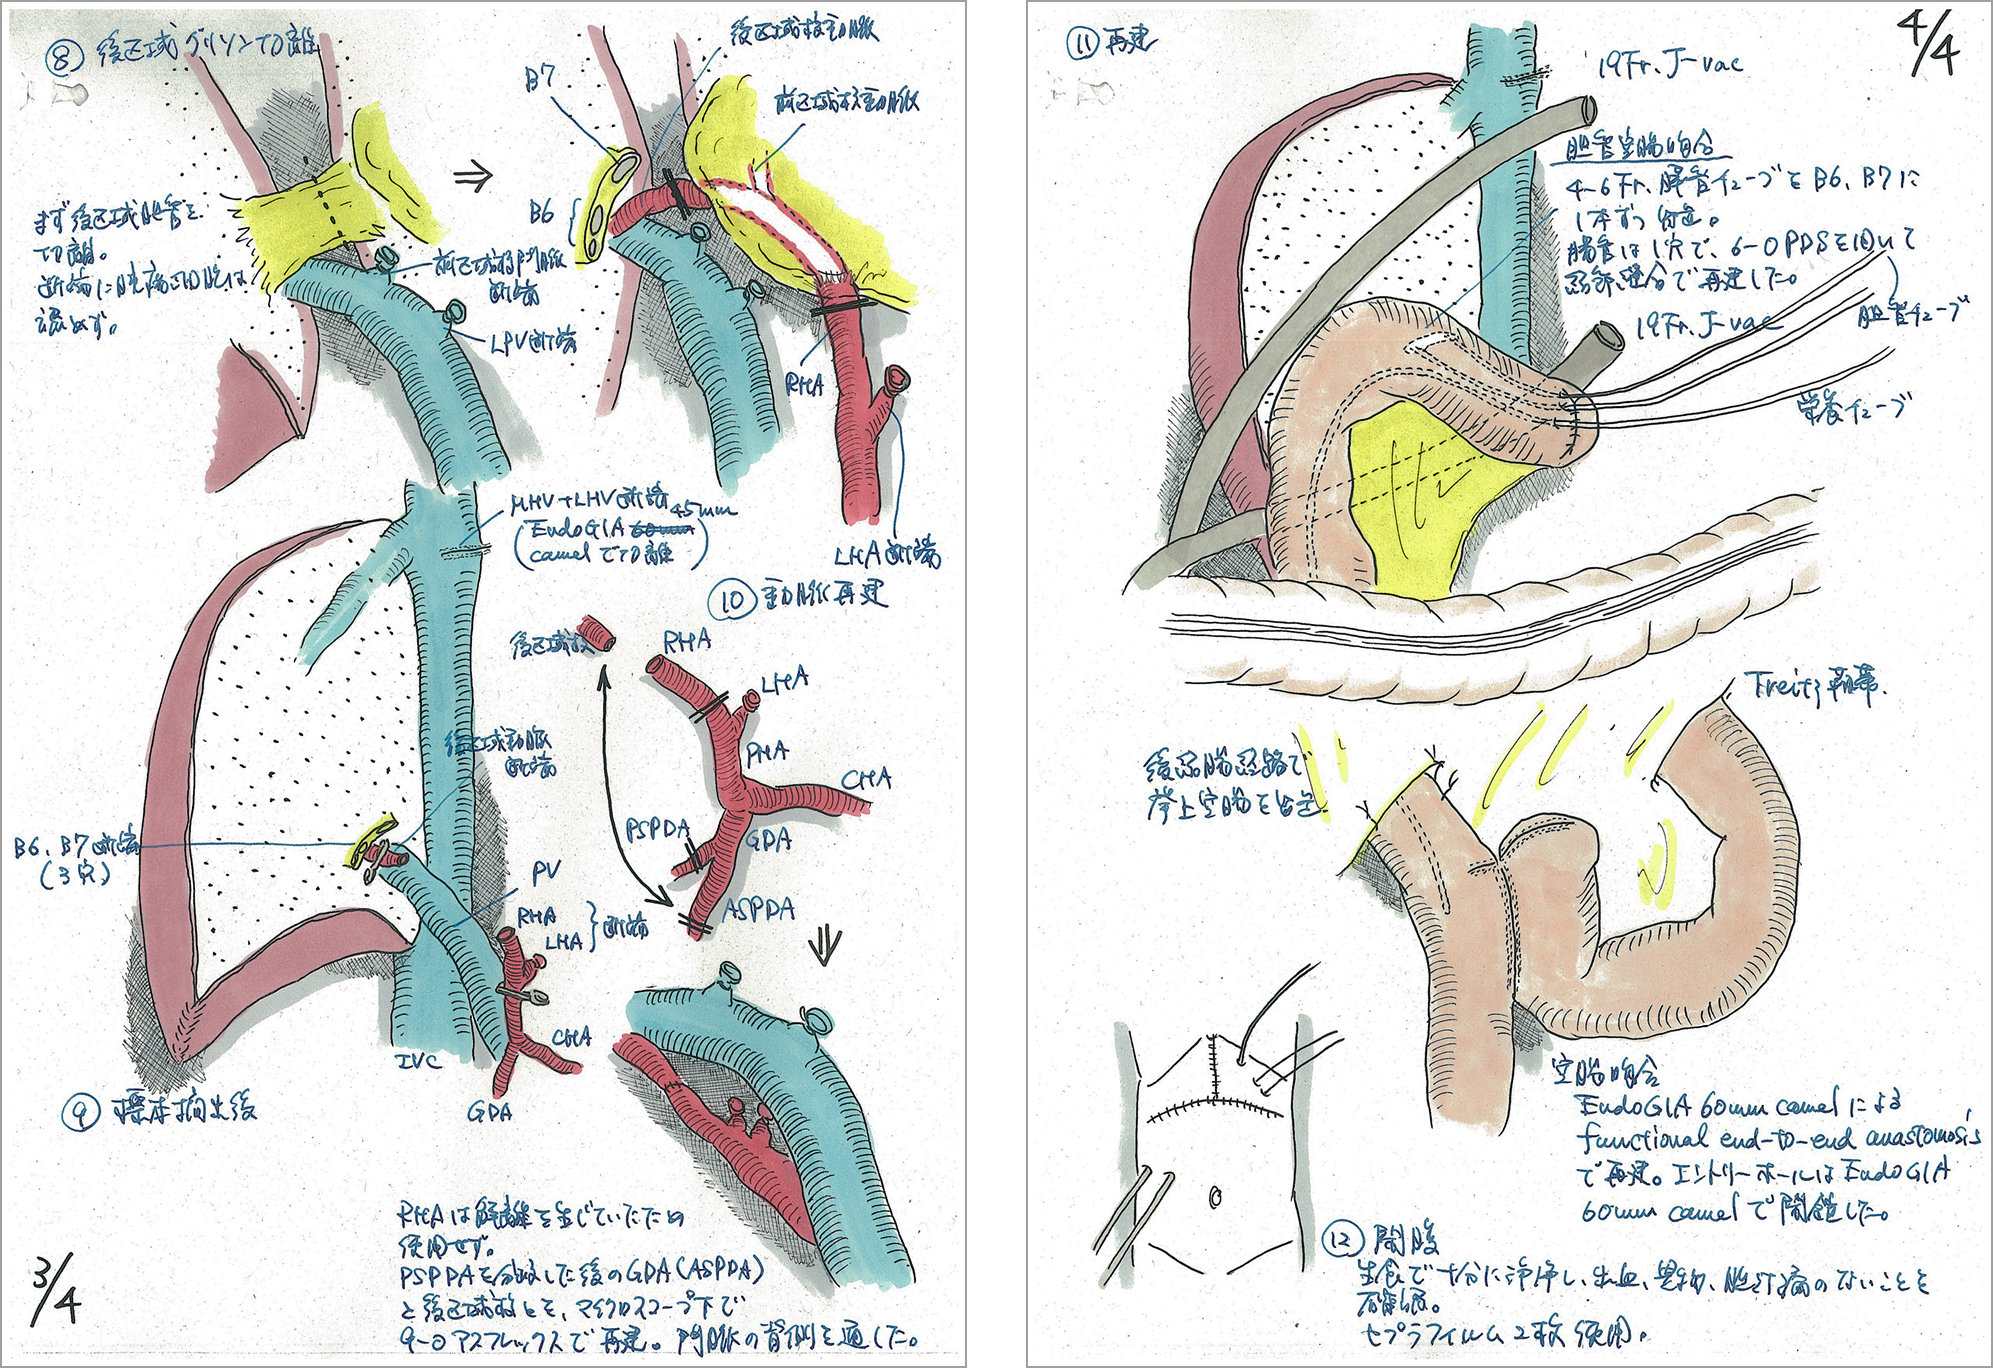 ⑧ 後区域グリソン切離
まず後区域胆管を
切離。
断端に腫瘍露出は
認めず。
前区域枝門脈
断端
LPV断端
後区域枝動脈
B7
前区域枝動脈
B6
RHA
LHA断端
MHV+LHV断端
45mm
(EndoGIA
camelで切離)
後区域動脈
断端
B6、B7断端
(3穴)
PV
RHA
LHA
断端
CHA
IVC
GDA
⑨ 標本摘出後
⑩ 動脈再建
後区域枝
RHA
LHA
PHA
CHA
PSPDA
GDA
ASPDA
RHAは解離を生じていたため
使用せず。
PSPDAを分岐した後のGDA(ASPDA)
と後区域枝とを、マイクロスコープ下で
9-0アスフレックスで再建。門脈の背側を通した。
3/4
4/4
⑪ 再建
19Fr. J-vac
胆管空腸吻合
4~6Fr. 膵管チューブをB6、B7に
1本ずつ留置。
腸管は1穴で、6-0 PDSを用いて
結節縫合で再建した。
19Fr. J-vac
胆管チューブ
栄養チューブ
Treitz靭帯
後結腸経路で
挙上空腸を留置
空腸吻合
EndoGIA 60mm camelによる
functional end-to-end anastomosis
で再建。エントリーホールはEndoGIA
60mm camelで閉鎖した。
⑫ 閉腹
生食で十分に洗浄し、出血、異物、胆汁漏のないことを
確認。
セプラフィルム2枚使用。